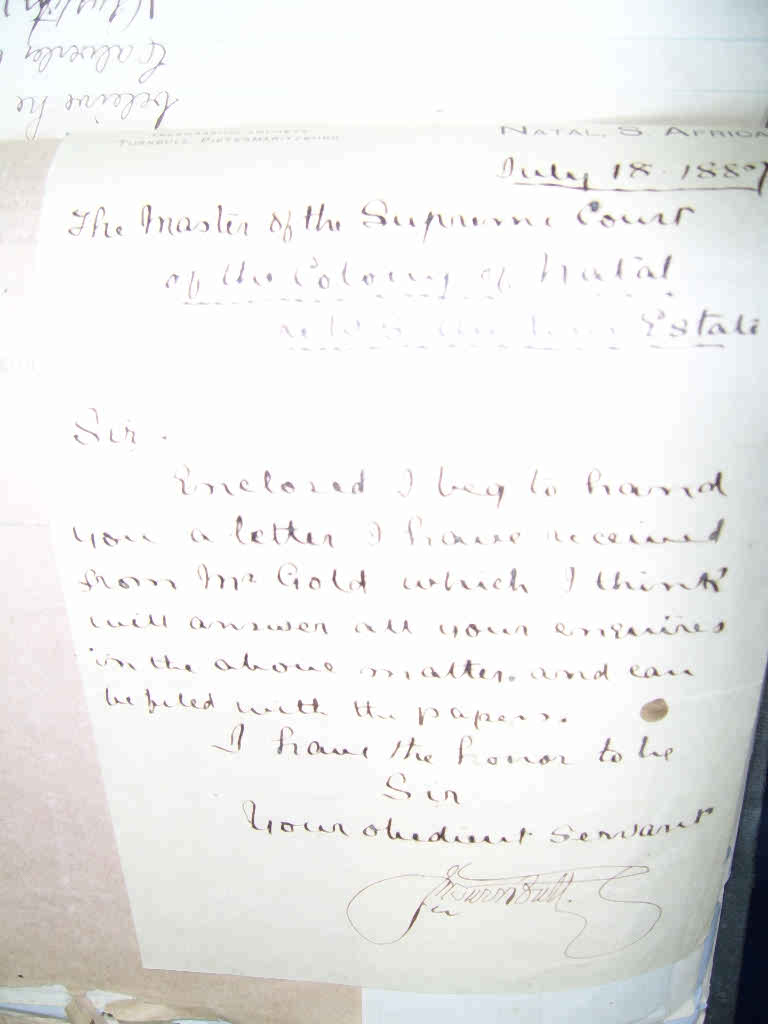 believe he
NATAL, S. AFRICA
TURNBULL PIETERMARITZBURG
July 18. 1887
The Master of the Supreme Court
of the Colony of Natal
Estate
Sir.
Enclosed I beg to hand
you a letter I have received
from Mr Gold which I think
will answer all your enquires
in the above matter. and can
be filed with the papers.
I have the honor to be
Sir
Your obedient servant
Turnbull.